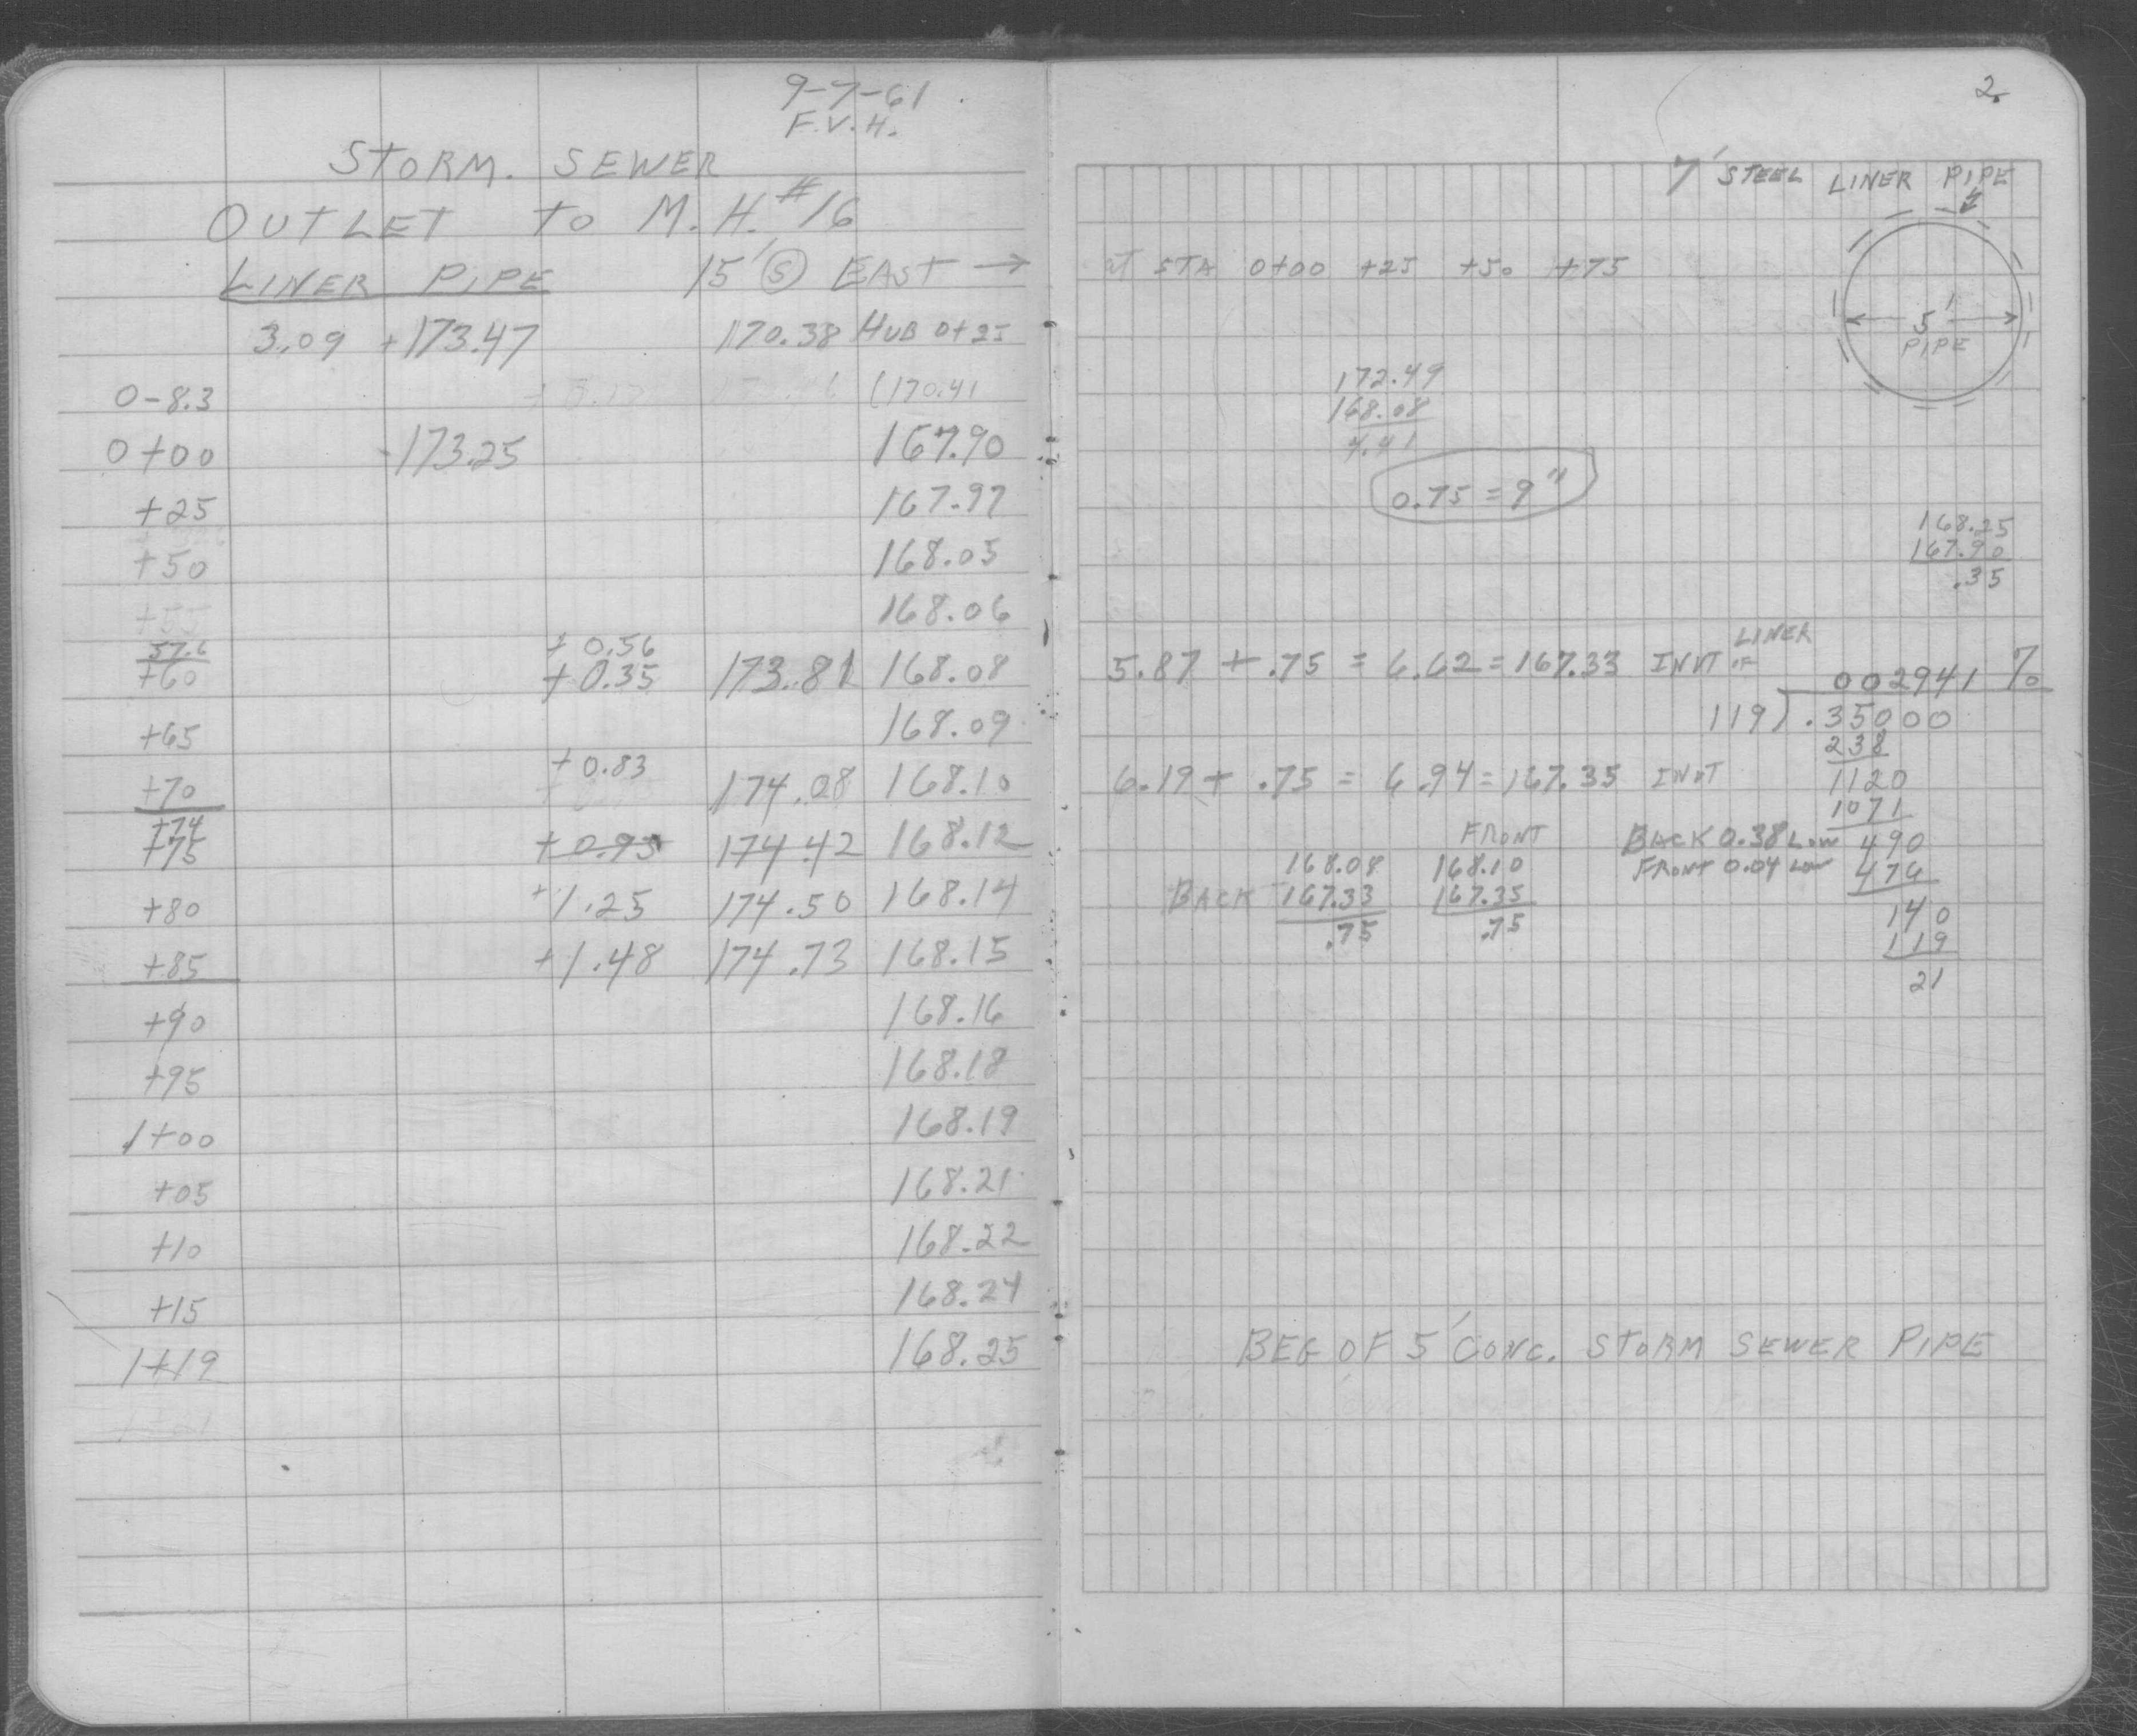 9-7-61
F.V.H.
STORM. SEWER
OUTLET to M.H. #16
LINER PIPE 15' Ⓢ EAST →
3.09 +173.47 170.38 HUB 0+25
0-8.3 (170.41
0+00 -173.25 167.90
+25 167.97
+50 168.05
+55 168.06
57.6 + 0.56
+60 + 0.35 173.81 168.08
+65 168.09
+70 + 0.83 174.08 168.10
+74
+75 + 0.95 174.42 168.12
+80 +1.25 174.50 168.14
+85 +1.48 174.73 168.15
+90 168.16
+95 168.18
1+00 168.19
+05 168.21
+10 168.22
+15 168.24
1+19 168.25
2
7' STEEL LINER PIPE
at STA 0+00 +25 +50 +75
5'
PIPE
172.49
168.08
4.41
0.75 = 9"
168.25
167.90
.35
5.87 + .75 = 6.62 = 167.33 INVT OF LINER
002941 %
119) .35000
238
1120
1071
490
476
140
119
21
6.19 + .75 = 6.94 = 167.35 INVT
BACK 0.38 LOW
FRONT 0.04 LOW
BACK
168.08
167.33
.75
FRONT
168.10
167.35
.75
BEG OF 5' CONC. STORM SEWER PIPE